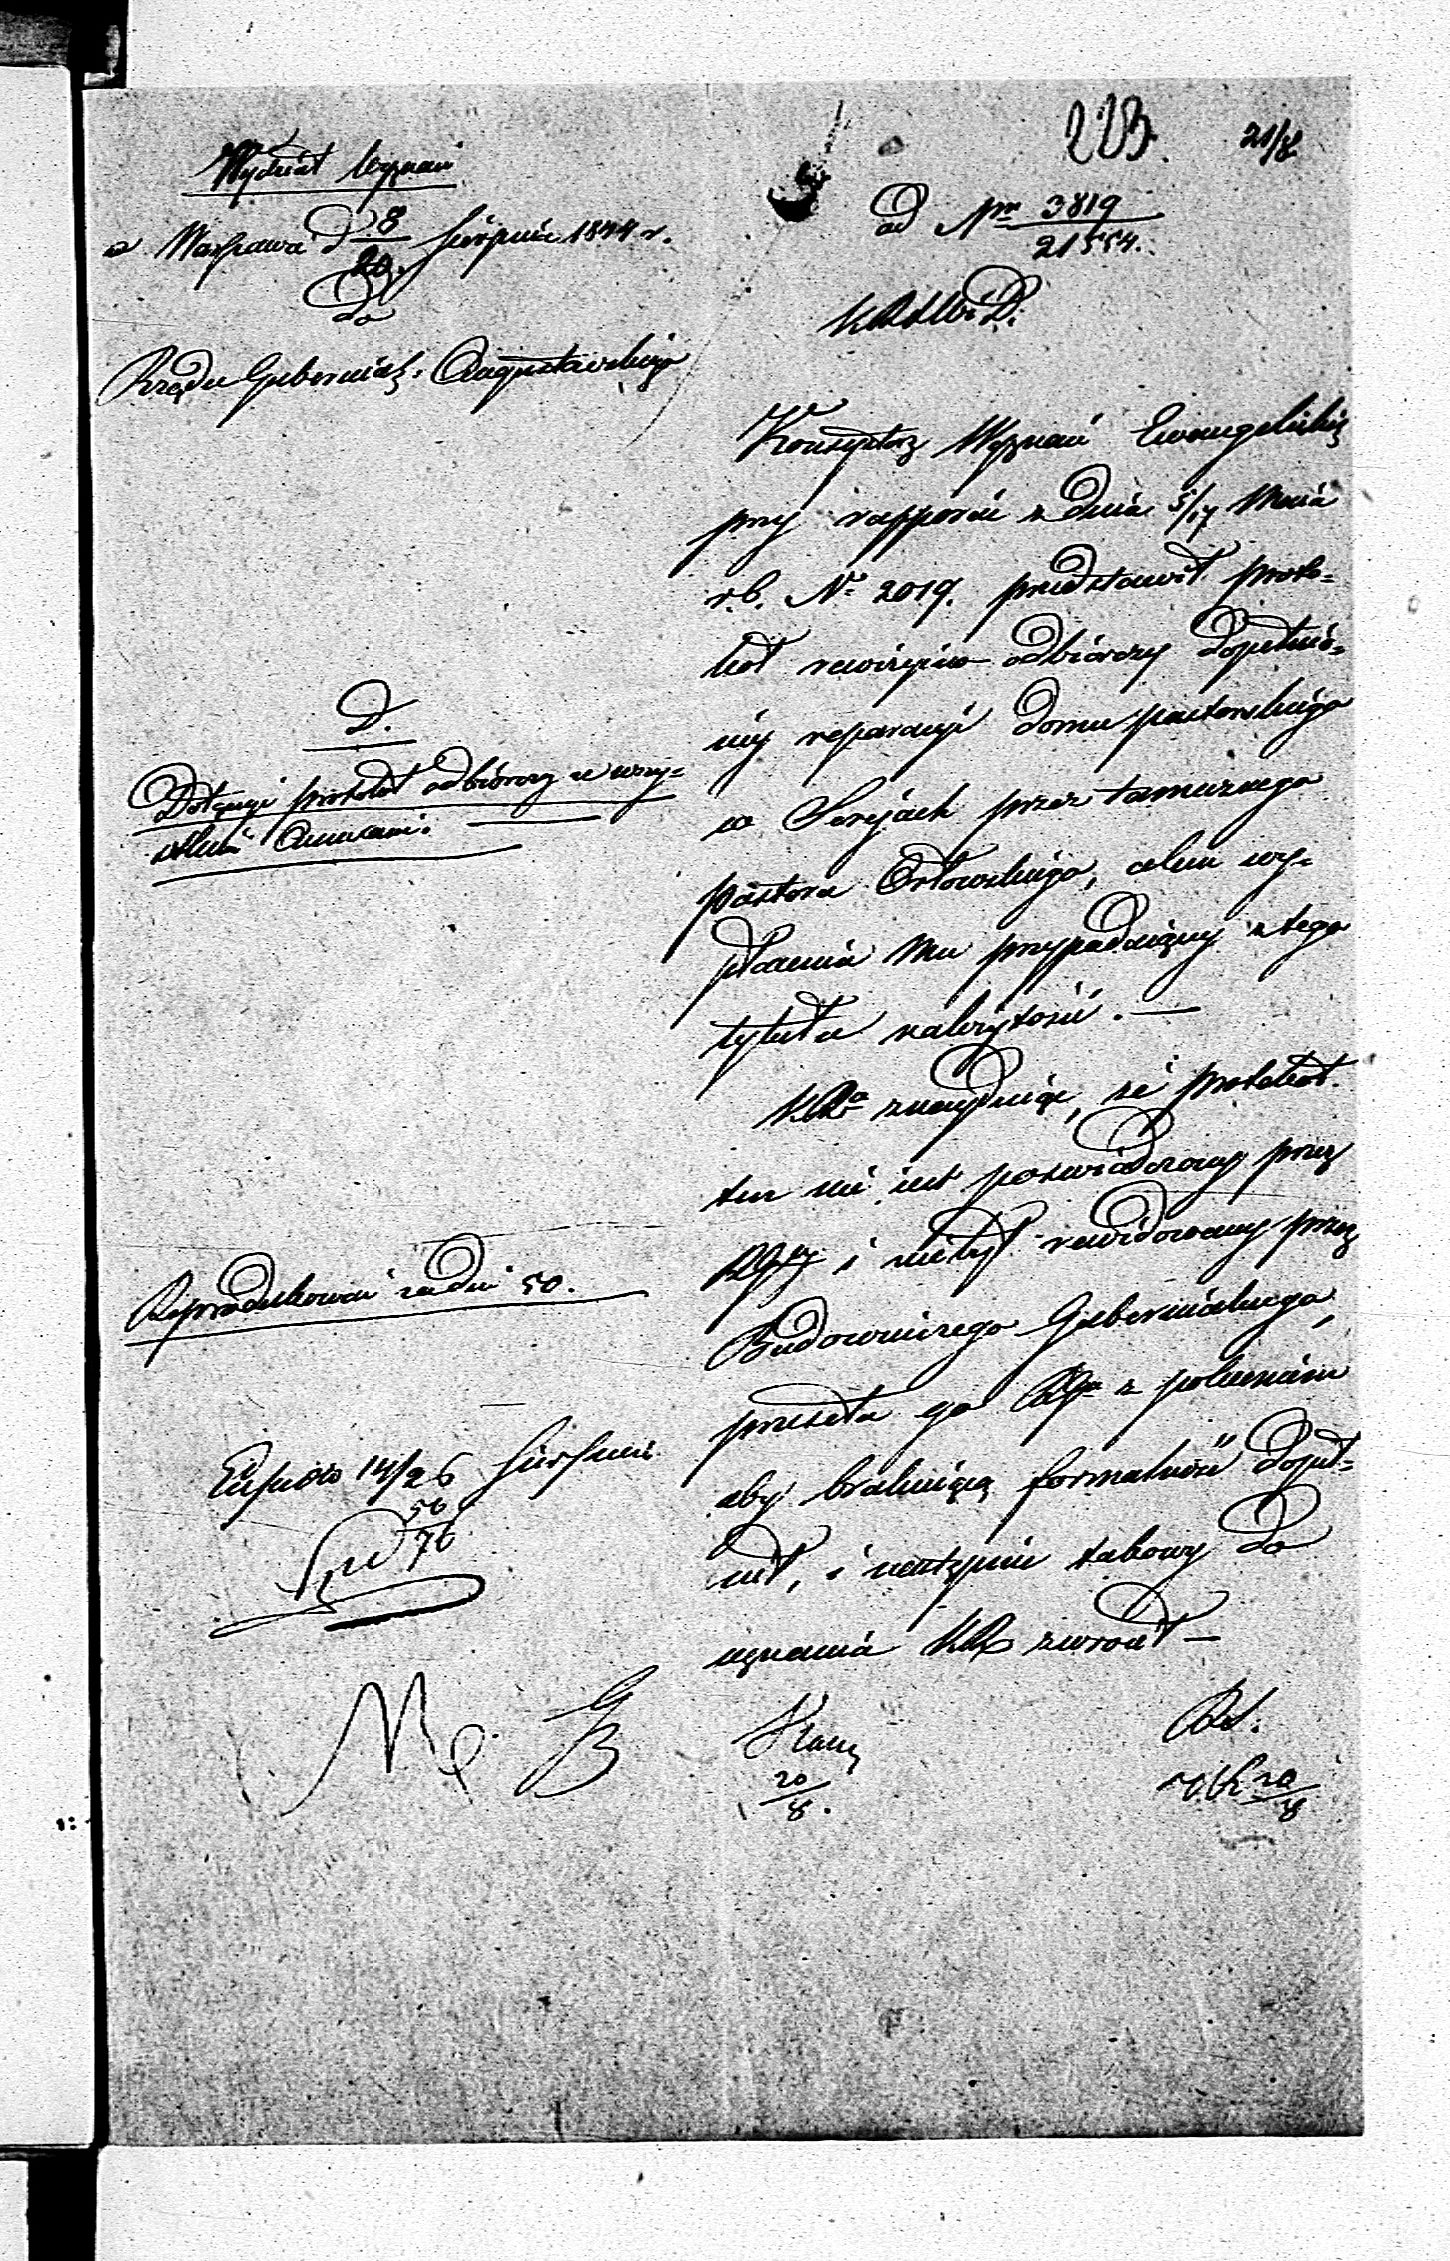 223. 21/8
Wydział Wyznań
w Warszawie d 8/20 Sierpnia 1844 r.
do
Rządu Gubernial: Augustowskiego
ad Nrm 3819/21554.
KRSWiD.
Konsystorz Wyznań Ewangelickich
przy rapporcie z dnia 5/17 Maia
r.b. No 2019. przedstawił proto=
kół rewizyino odbiorczy dopełnio=
néj reparacyi domu pastorskiego
w Serejach przez tamecznego
pastora Orłowskiego, celem wy=
płacenia Mu przypadaiącéj z tego
tytułu należytości. —
KRa znayduiąc, że protokół
ten nie iest poświadczony przez
RGny i nie był rewidowany przez
Budowniczego Gubernialnego,
przeseła go RGmu z poleceniem
aby brakuiącą formalność dopeł=
nił, i następnie takowy do
uznania KR zwrócił —
D.
Dołączyć protokół odbiorczy ze wszy=
stkiemi Annexami.
Reprodukować za dni 50.
Expedio 14/26 Sierpnia
56/76
20/8.
20/8